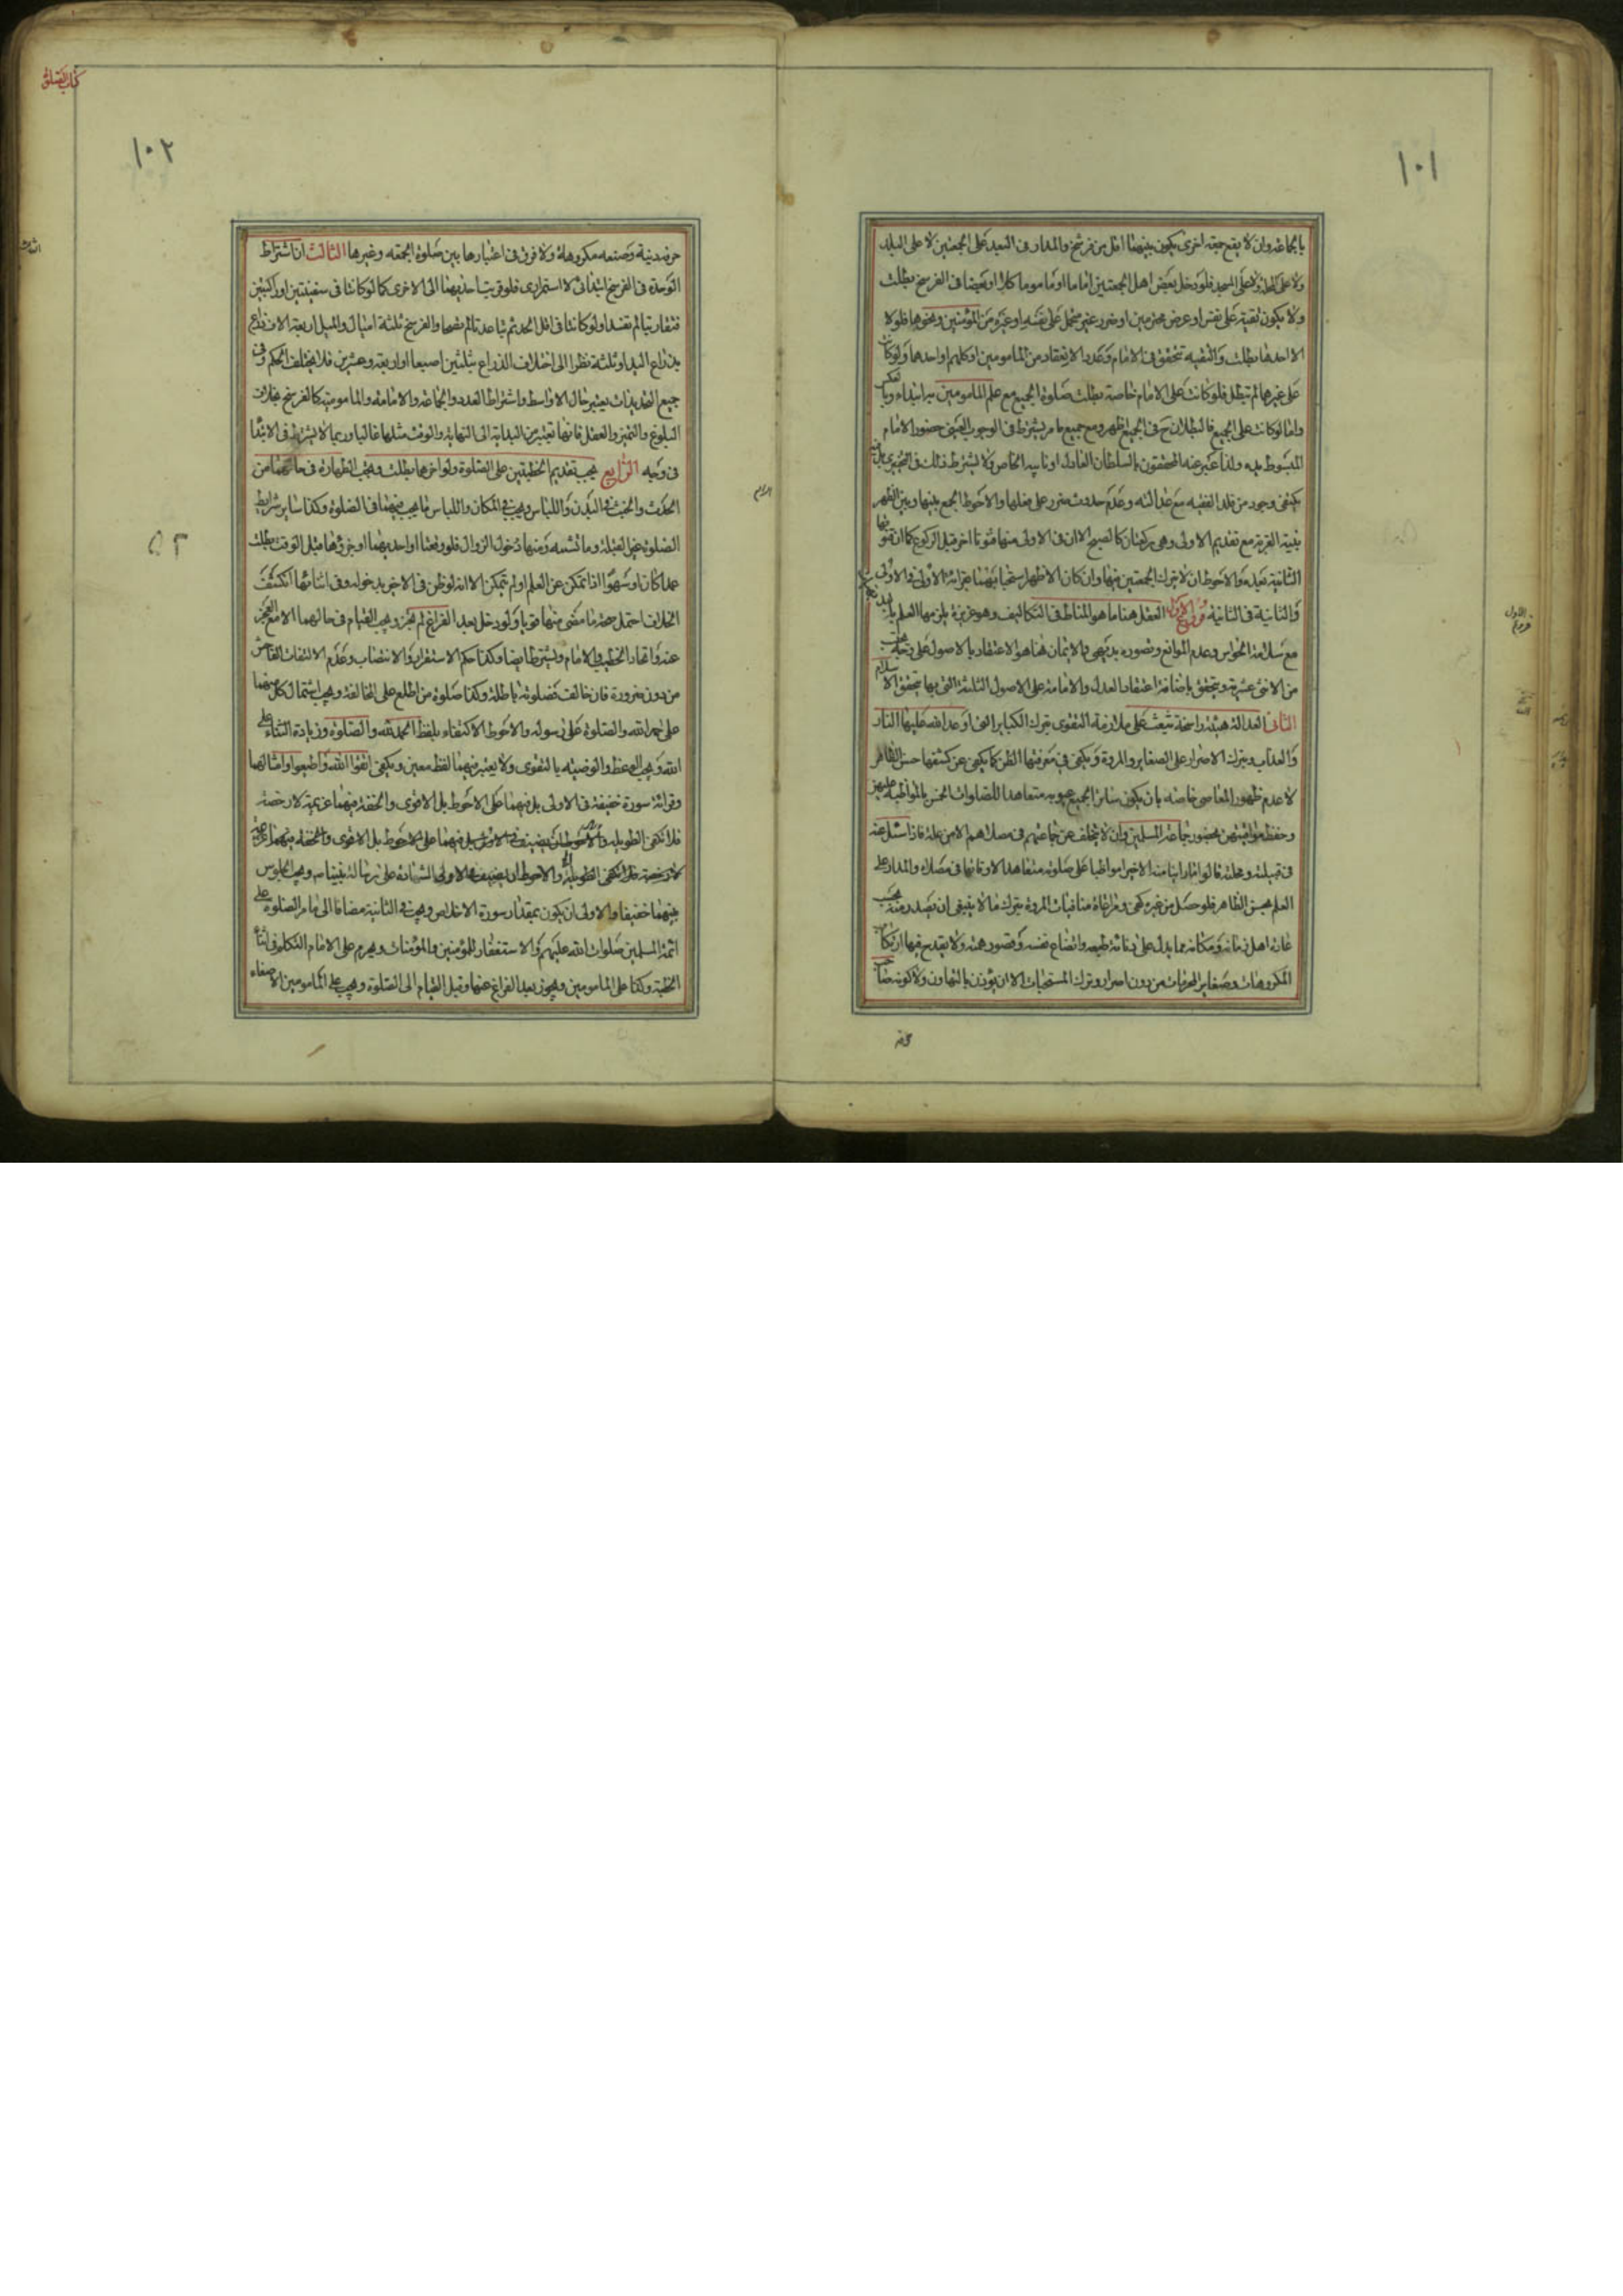 ١٠١
بالجماعة وان لا يقع جمعة اخرى يكون بينهما اقل من فرسخ والمدار فى البعد على الجمعتين لا على البلد
ولا على المحلة ولا على المسجد فلو دخل بعض اهل الجمعتين اماما او ماموما كلا او بعضا فى الفرسخ بطلت
ولا يكون تقية على نفس او عرض محترمين او ضرر غير متحمل على نفسه او غيره من المؤمنين ونحوها فلولا
الا احدها بطلت والتقية تتحقق فى الامام وعدد الانعقاد من المامومين او كلهم او احدها ولو كانت
على غيرها لم تبطل فلو كانت على الامام خاصة بطلت صلوة الجميع مع علم المامومين به ابتداء وبالعكس
واما لو كانت على الجميع فالبطلان ح فى الجميع اظهر ومع جميع ما مر يشترط فى الوجوب العينى حضور الامام
المبسوط يده ولذا عبر عنه المحققون بالسلطان العادل او نايبه الخاص ولا يشترط ذلك فى التخييرى بل
يكتفى وجود من قلد الفقيه مع عدالته وعدم حدوث ضرر على فعلها والاحوط الجمع بينها وبين الظهر
بنية القربة مع تقديم الاولى وهى ركعتان كالصبح الا ان فى الاولى منها قنوتا اخر قبل الركوع كما ان قنوتها
الثانية بعده والاحوط ان لا يترك الجمعتين فيها وان كان الاظهر استحبابهما بقرائة الاولى فى الاولى
والثانية فى الثانية فروع الاول العقل هنا ما هو المناط فى التكاليف وهو غريزة يلزمها العلم
مع سلامة الحواس وعدم الموانع وتصوره بديهى والايمان هنا هو الاعتقاد بالاصول على وجه
من الاثنى عشرية ويتحقق باضافة اعتقاد العدل والامامة على الاصول الثلثة التى بها يتحقق الاسلام
الثانى العدالة هيئة راسخة تبعث على ملازمة التقوى بترك الكباير التى اوعد الله عليها النار
والعذاب وبترك الاصرار على الصغاير والمروة ويكفى فى معرفتها الظن كما يكفى عن كشفها حسن الظاهر
لا عدم ظهور المعاصى خاصة بان يكون ساترا لجميع عيوبه متعاهدا للصلوات الخمس بالمواظبة عليهن
وحفظ مواقيتهن بحضور جماعة المسلمين وان لا يتخلف عن جماعتهم فى مصلاهم الا من علة فاذا سئل عنه
فى قبيلته ومحلته قالوا ما راينا منه الا خيرا مواظبا على صلوته متعاهدا لاوقاتها فى مصلاه والمدار على
العلم بحسن الظاهر فلو حصل من غيره كفى ومراعاة منافيات المروة بترك ما لا ينبغى ان يصدر منه بحسب
عادة اهل زمانه ومكانه مما يدل على دنائة طبعه واتضاع نفسه وقصور همته ولا يقدح فيها ارتكاب
المكروهات وصغاير المحرمات من دون اصرار وترك المستحبات الا ان يؤذن بالتهاون ولا كونه صاحب
حرفة
كتاب الصلوة
١٠٢
حرفة دنية وصنعة مكروهة ولا فرق فى اعتبارها بين صلوة الجمعة وغيرها الثالث ان اشتراط
الوحدة فى الفرسخ ابتدائى لا استمرارى فلو قربت احديهما الى الاخرى كما لو كانتا فى سفينتين او راكبتين
فتقاربتا لم تفسد او لو كانتا فى اقل الحد ثم تباعدتا لم تصحا والفرسخ ثلثة اميال والميل اربعة الاف ذراع
بذراع اليد او ثلثة نظرا الى اختلاف الذراع بثلثين اصبعا او اربعة وعشرين فلا يختلف الحكم وفى
جميع التحديدات يعتبر حال الاواسط واشتراط العدد والجماعة والامامة والمامومية كالفرسخ بخلاف
البلوغ والتميز والعقل فانها تعتبر من البداية الى النهاية والوقت مثلها غالبا وربما لا يشترط فى الابتدا
فى وجه الرابع يجب تقديم الخطبتين على الصلوة ولو اخرهما بطلت ويجب الطهارة فى حالتهما من
الحدث والخبث فى البدن واللباس ويجب فى المكان واللباس ما يجب فيهما فى الصلوة وكذا ساير شرايط
الصلوة غير القبلة وما تشبه ومنها دخول الزوال فلو وقعتا او احديهما او جزؤها قبل الوقت بطلت
عمدا كان او سهوا اذا تمكن عن العلم او لم يتمكن الا انه لو ظن فى الاخير بدخوله وفى اثنائها انكشف
الخلاف احتمل صحة ما مضى منها قويا ولو دخل بعد الفراغ لم تجز ويجب القيام فى حالهما الا مع العجز
عنه واتحاد الخطيب والامام ويشترط ايضا وكذا حكم الاستقرار والانتصاب وعدم الالتفات الفاحش
من دون ضرورة فان خالف فصلوته باطلة وكذا صلوة من اطلع على المخالفة ويجب اشتمال كل منهما
على حمد الله والصلوة على رسوله والاحوط الاكتفاء بلفظ الحمد لله والصلوة وزيادة الثناء على
الله ويجب الوعظ والوصية بالتقوى ولا يعتبر فيهما لفظ معين ويكفى اتقوا الله واطيعوا وامثالهما
وقرائة سورة خفيفة فى الاولى بل فيهما على الاحوط بل الاقوى والخفة فيهما عزيمة لا رخصة
فلا تكفى الطويلة
لا رخصة فلا تكفى الطويلة والاحوط ان يضيف فى الاولى الشهادة على رسالة نبينا ص ويجب الجلوس
بينهما خفيفا والاولى ان يكون بمقدار سورة الاخلاص ويجب فى الثانية مضافا الى ما مر الصلوة على
ائمة المسلمين صلوات الله عليهم والاستغفار للمؤمنين والمؤمنات ويحرم على الامام التكلم فى اثناء
الخطبة وكذا على المامومين ويجوز بعد الفراغ عنها وقبل القيام الى الصلوة ويجب على المامومين الاصغاء
٥٢